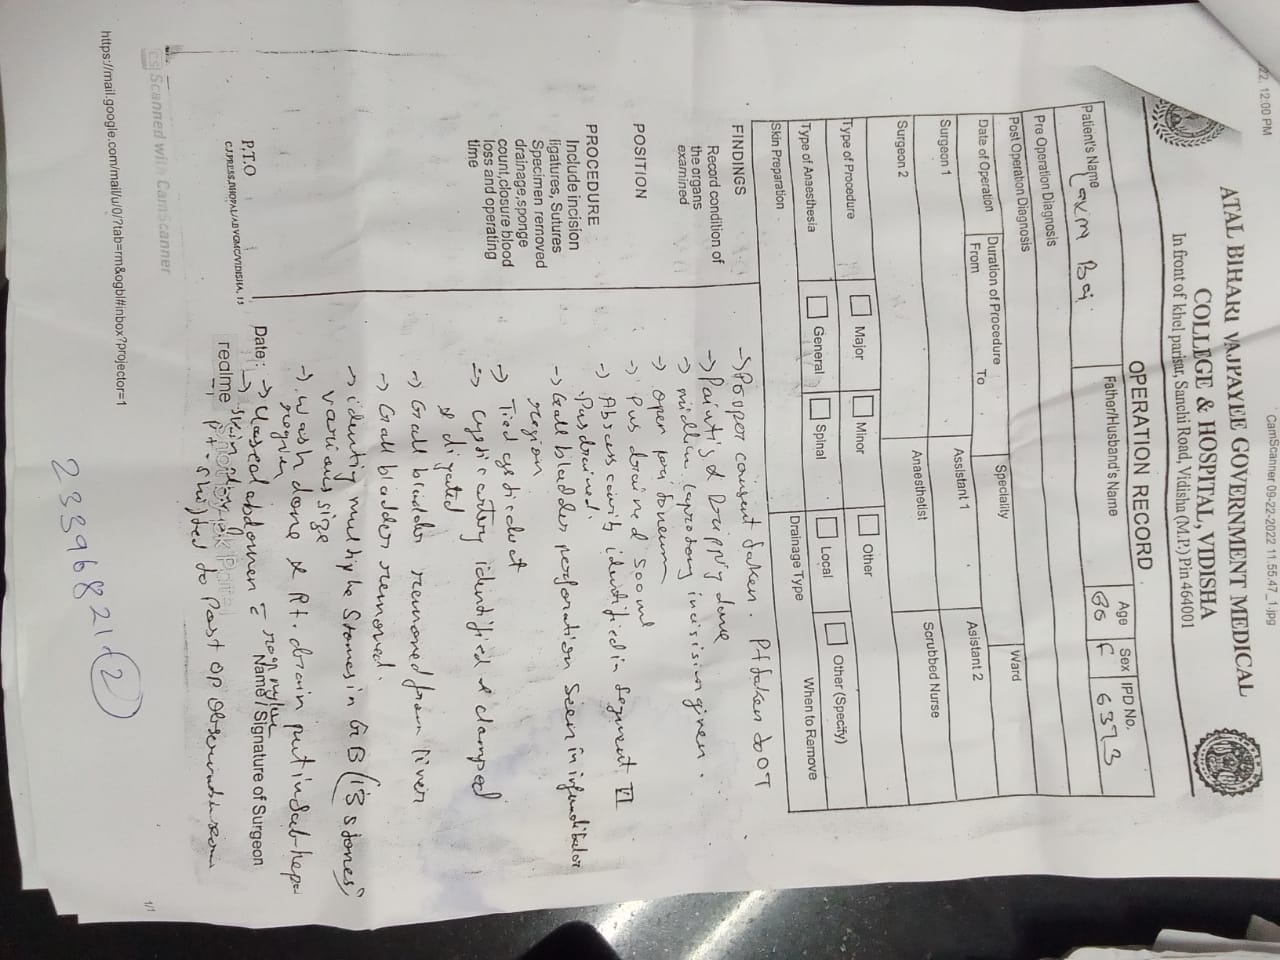 22, 12:00 PM
CamScanner 09-22-2022 11.55.47_1.jpg
ATAL BIHARI VAJPAYEE GOVERNMENT MEDICAL
COLLEGE & HOSPITAL, VIDISHA
In front of khel parisar, Sanchi Road, Vidisha (M.P.) Pin 464001
OPERATION RECORD
Patient's Name Father/Husband's Name Age Sex IPD No.
Laxm Bai 60 F 6373
Pre Operation Diagnosis
Post Operation Diagnosis
Date of Operation Duration of Procedure Speciality Ward
From To
Surgeon 1 Assistant 1 Asistant 2
Surgeon 2 Anaesthetist Scrubbed Nurse
Type of Procedure Major Minor Other
Type of Anaesthesia General Spinal Local Other (Specify)
Skin Preparation Drainage Type When to Remove
FINDINGS
Record condition of
the organs
examined
POSITION
PROCEDURE
Include incision
ligatures, Sutures
Specimen removed
drainage,sponge
count,closure blood
loss and operating
time
→ Proper consent taken. Pt taken to OT
→ Painti & Drippig done
→ midline laprotomy incision given.
→ open peritoneum
→ Pus drained 500 ml
→ Abscess cavity identified in segment VI
Pus drained.
→ Gall bladder perforation seen in infundibular
region
→ Tied cystic duct
→ cystic artery identified & clamped
& ligated
→ Gall bladder removed from liver
→ Gall bladder removed.
→ identify multiple stones in GB (13 stones)
various size
→ wash done & Pt. drain put in sub-hepa
region
→ closed abdomen c̄ nylon
→ skin
→ Pt. shifted to Post op Observation room
Date: Name/Signature of Surgeon
P.T.O
realme
2339682112
https://mail.google.com/mail/u/0/?tab=rm&ogbl#inbox?projector=1
1/1
CS Scanned with CamScanner